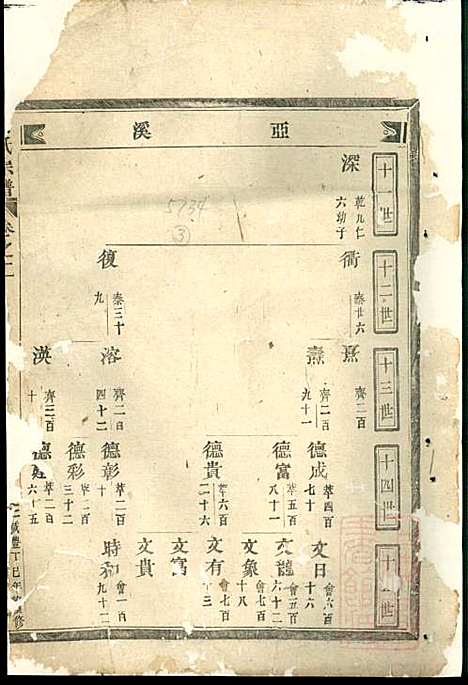 亞溪
十一世
十二世
十三世
十四世
十世
深
乾九仁
六幼子
衢
秦廿六
復
秦三十
九
熹
齊二百
燾
齊二百
九十一
溶
齊二百
四十二
渶
齊二百
十
德成
萃四百
七十
德富
萃五百
八十一
德貴
萃六百
二十六
德彰
萃二百
十
德彩
萃二百
三十二
德
萃二百
六十五
文日
會六百
十六
文龍
會五百
六十二
文象
會七百
十八
文有
會七百
十三
文富
文貴
時和
會一百
九十二
氏宗譜
卷之二
咸豐丁巳年
修
5734
③